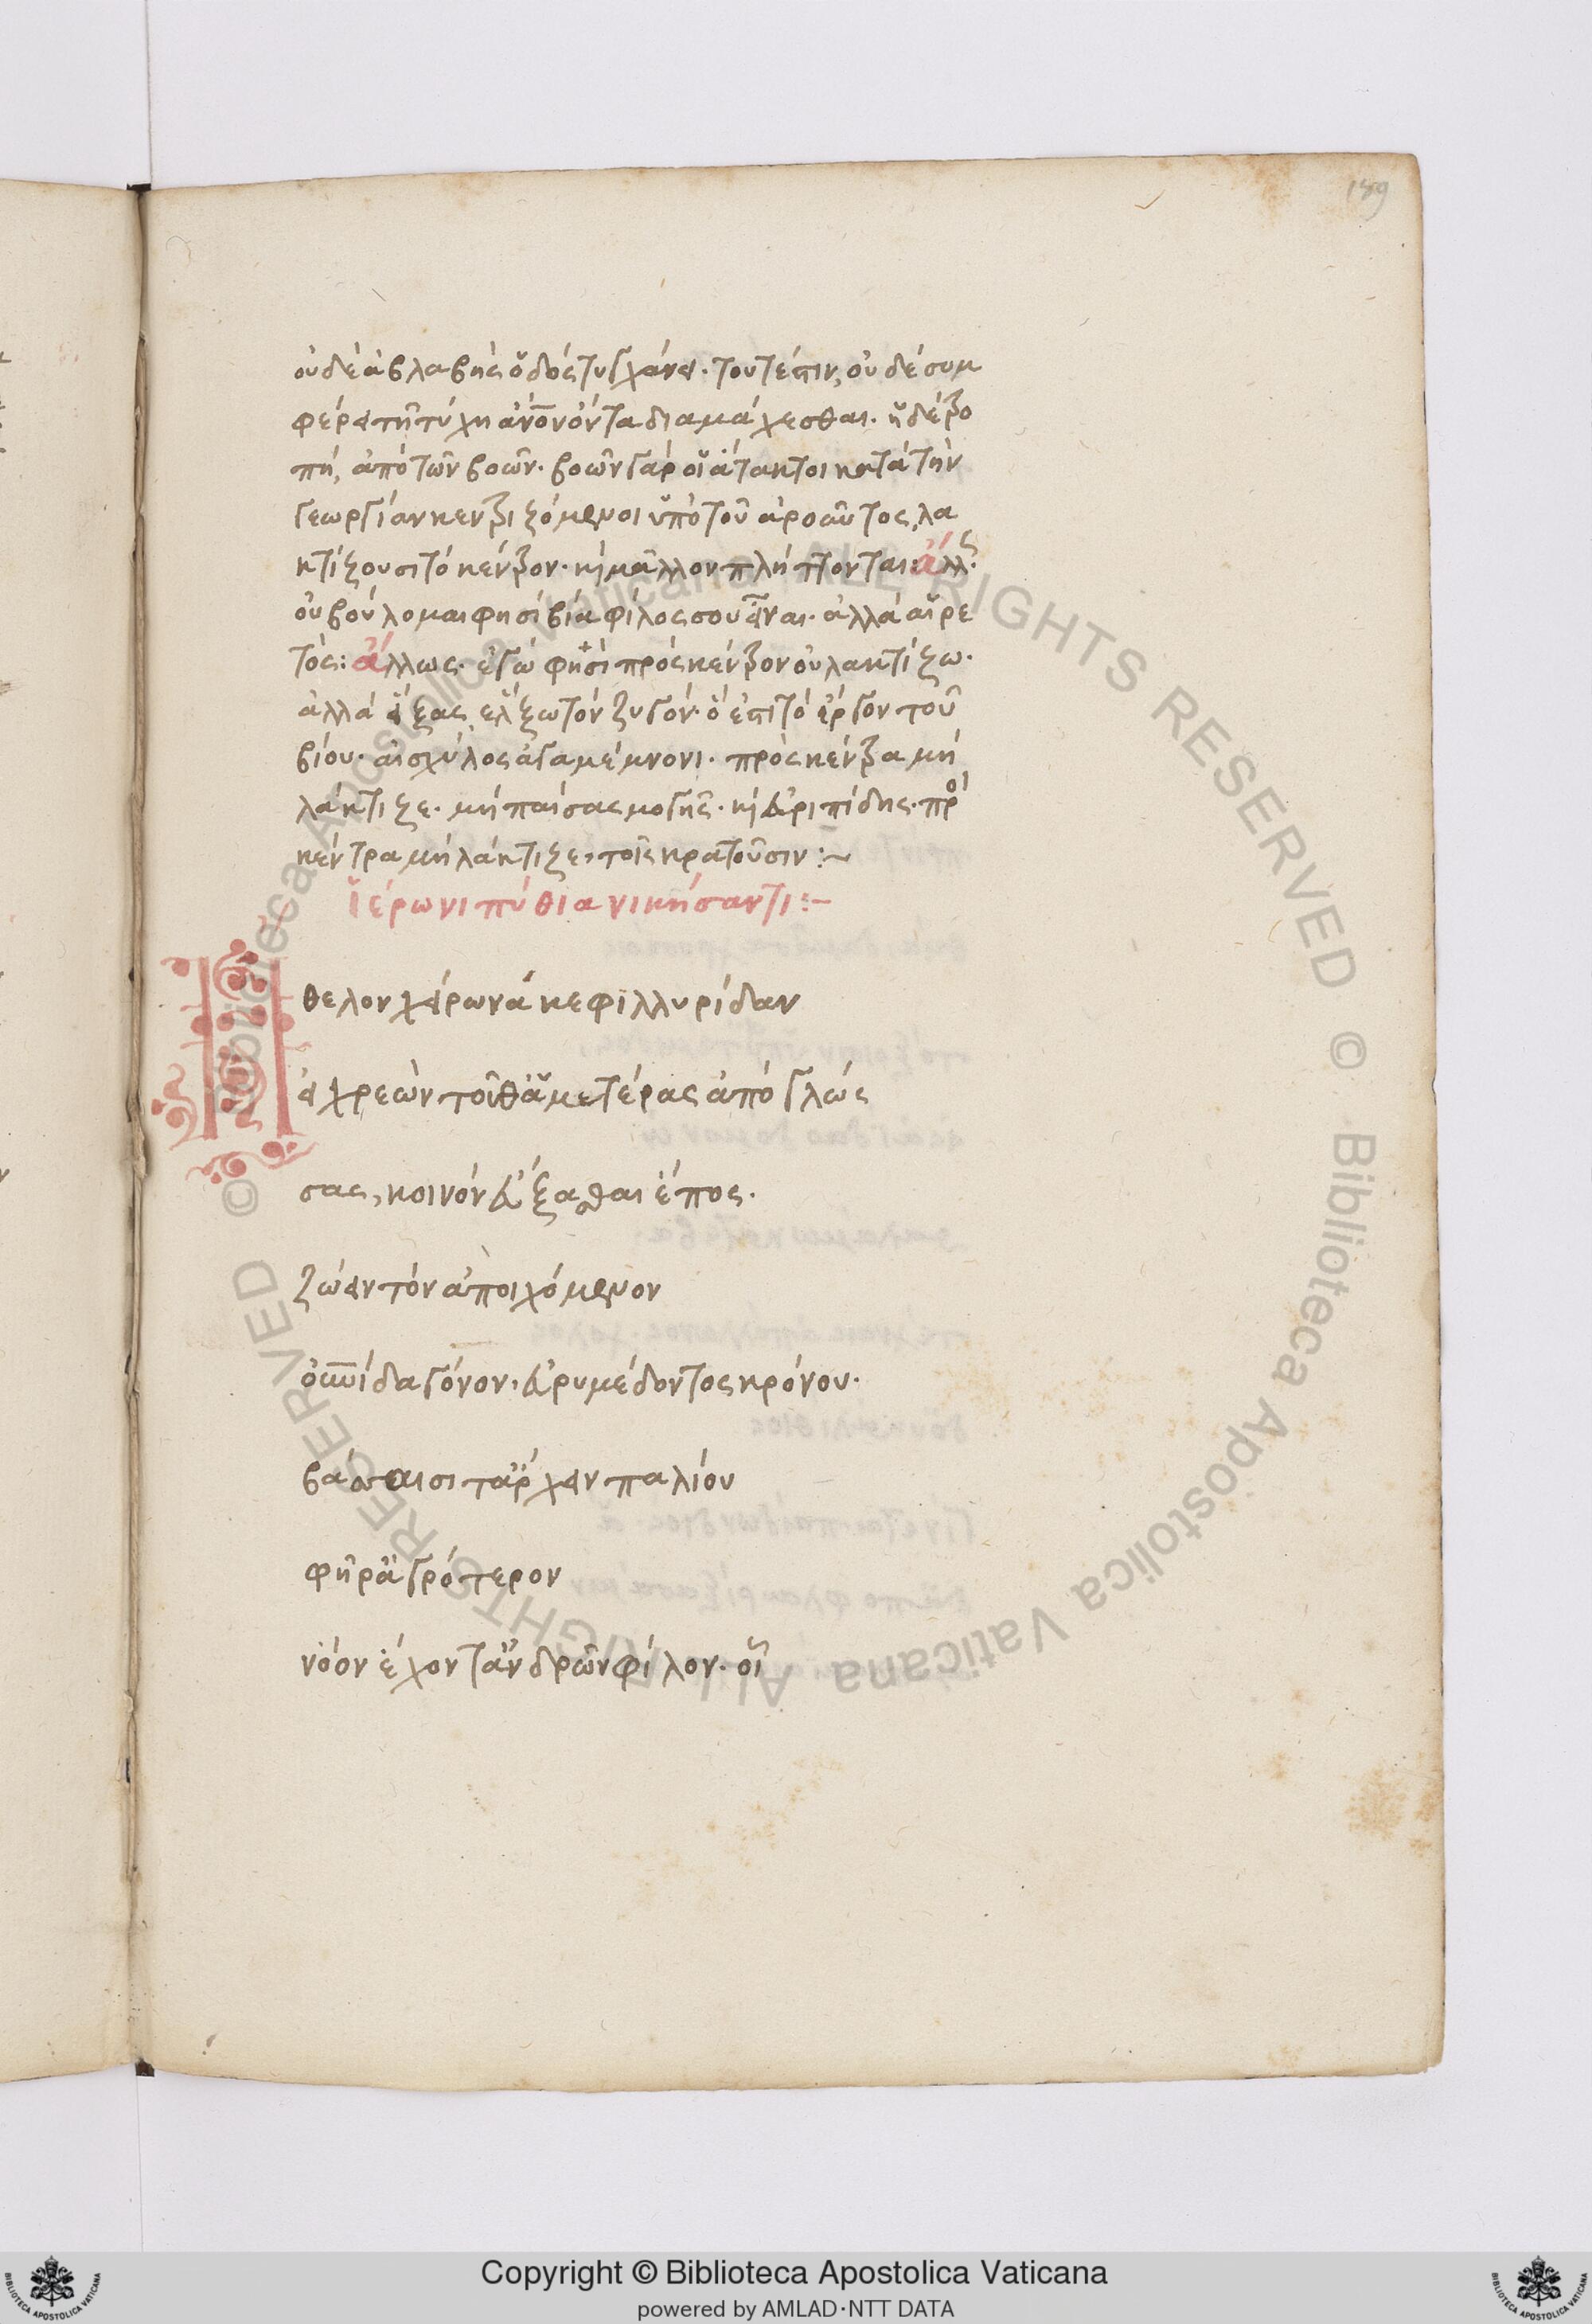 189
οὐδὲ ἀβλαβὴς ὁδὸς τυγχάνει· τουτέστιν, οὐδὲ συμ
φέρει τῆ τύχη ἀν̅ο̅ν ὄντα διαμάχεσθαι· ἡ δὲ τρο
πὴ, ἀπὸ τῶν βοῶν· βοῶν γὰρ οἱ ἄτακτοι κατὰ τὴν
γεωργίαν κεντριζόμενοι ὑπὸ τοῦ ἀροῦντος, λα
κτίζουσι τὸ κέντρον· κὶ μᾶλλον πλήττονται: ἄλλς·
οὐ βούλομαι φησὶ βία φίλος σου εἶναι· ἀλλὰ αἱρε
τός: ἄλλως· ἐγὼ φησὶ πρὸς κέντρον οὐ λακτίζω·
ἀλλὰ εἴξας ἕλξω τὸν ζυγόν· ὅ ἐστι τὸ ἔργον τοῦ
βίου· αἰσχύλος ἀγαμέμνονι· πρὸς κέντρα μὴ
λάκτιζε· μὴ παίσας μογῆς· κὶ εὐριπίδης· πρὸ
κέντρα μὴ λάκτιζε, τοῖς κρατοῦσιν :~
ἱέρωνι πύθια νικήσαντι :~
Ἤθελον χείρωνά κε φιλλυρίδαν
εἰ χρεὼν τοῖθ' ἁμετέρας ἀπὸ γλώς
σας, κοινὸν εὔξασθαι ἔπος·
ζώειν τὸν ἀποιχόμενον
οὐ̅νίδα γόνον, εὐρυμέδοντος κρόνου·
βάσσαισι τ' ἄρχειν παλίου
φῆρ' ἀγρότερον
νόον ἔχοντ' ἀνδρῶν φίλον· οἷ
© Biblioteca Apostolica Vaticana ALL RIGHTS RESERVED © Biblioteca Apostolica Vaticana ALL RIGHTS RESERVED
Copyright © Biblioteca Apostolica Vaticana
powered by AMLAD·NTT DATA
BIBLIOTECA APOSTOLICA VATICANA
BIBLIOTECA APOSTOLICA VATICANA